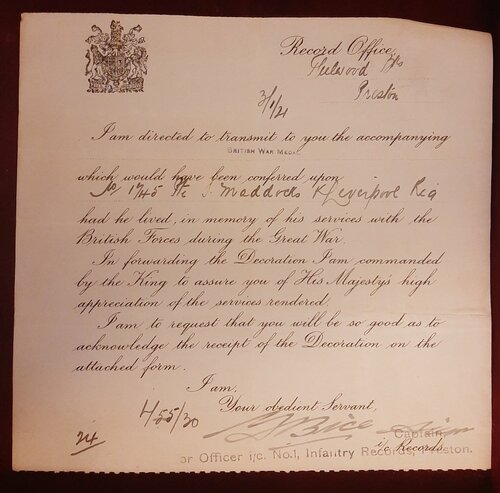 Record Office,
Fulwood Bks
Preston
3/1/21
I am directed to transmit to you the accompanying
BRITISH WAR MEDAL
which would have been conferred upon
No 1745 Pte J. Maddocks K Liverpool Reg
had he lived, in memory of his services with the
British Forces during the Great War.
In forwarding the Decoration I am commanded
by the King to assure you of His Majesty's high
appreciation of the services rendered.
I am to request that you will be so good as to
acknowledge the receipt of the Decoration on the
attached form.
I am,
Your obedient Servant,
455/30
Captain
i/c Records
24
or Officer i/c. No.1, Infantry Records, Preston.